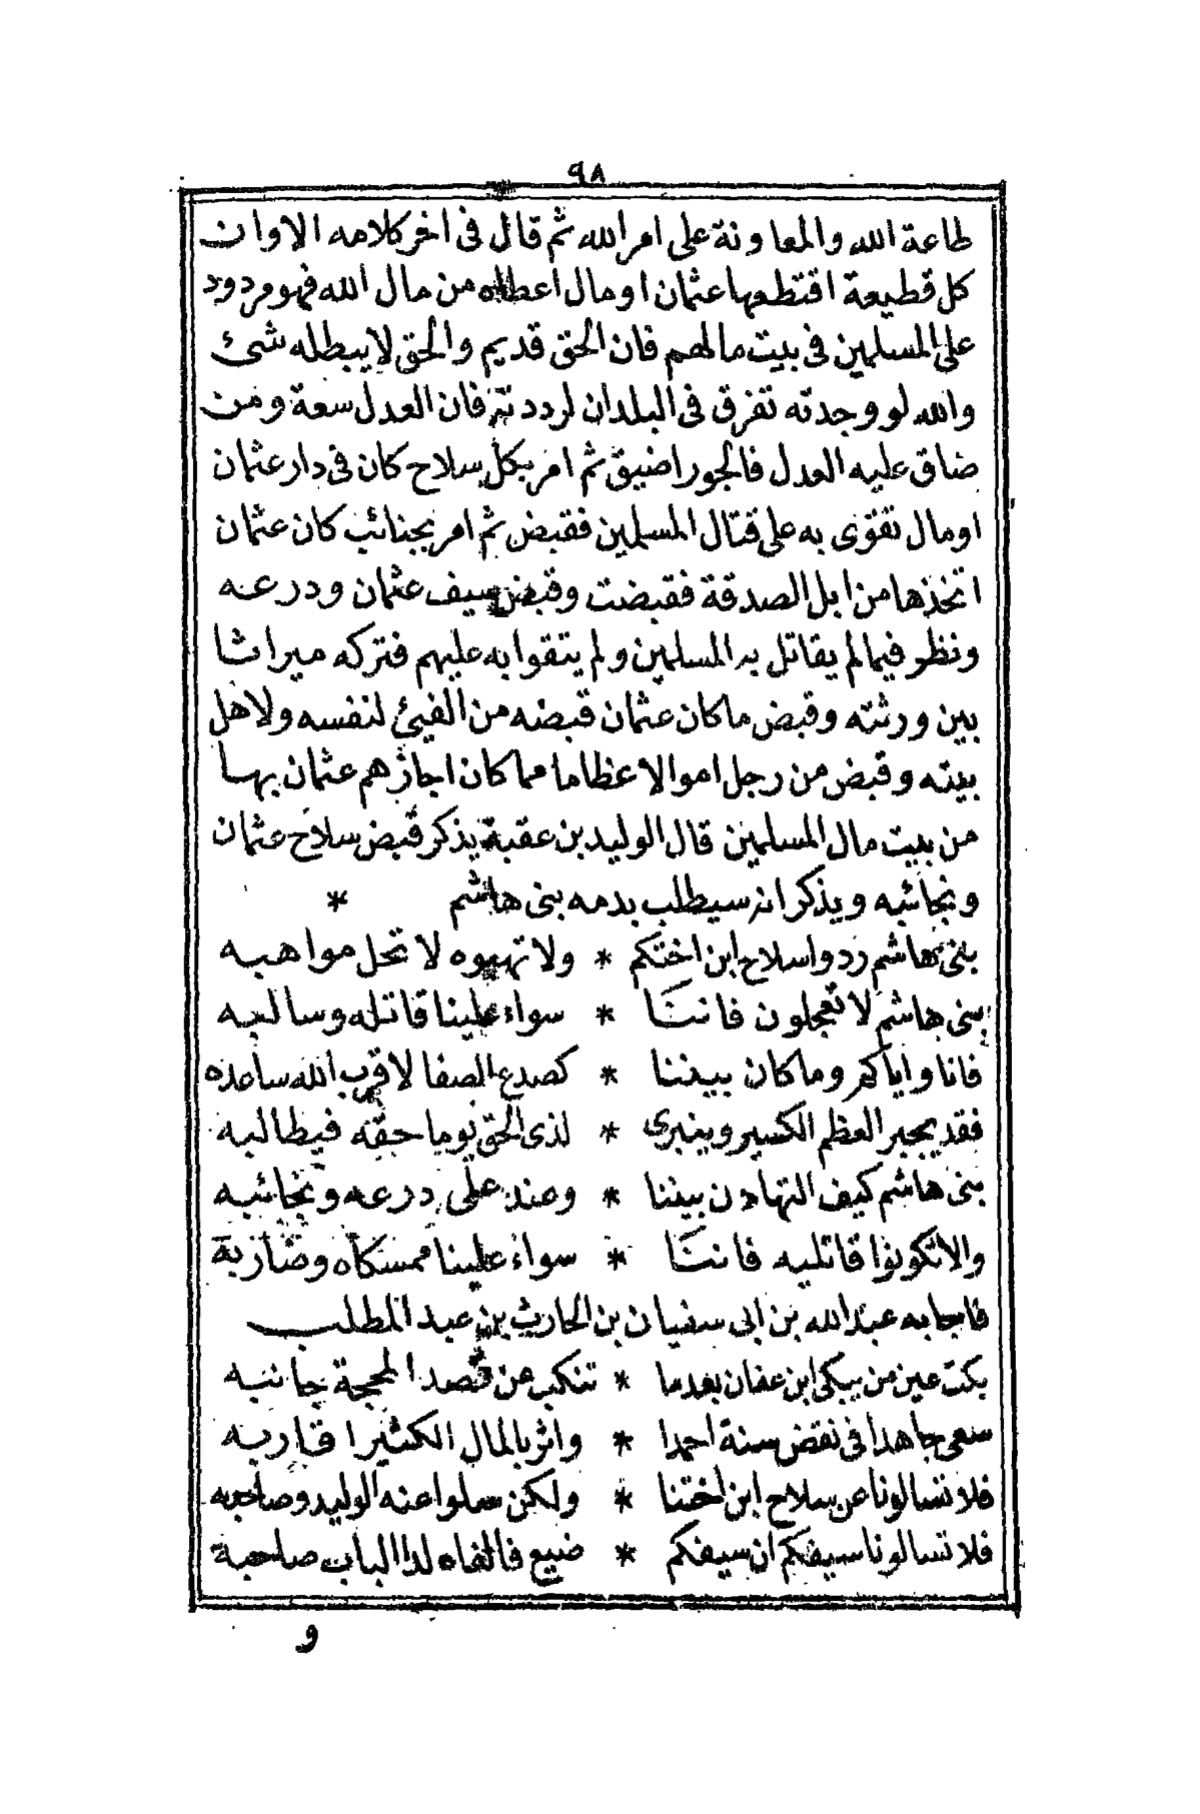 ٩٨
طاعة الله والمعاونة على امر الله ثم قال فى اخر كلامه الا وان
كل قطيعة اقتطعها عثمان او مال اعطاه من مال الله فهو مردود
على المسلمين فى بيت مالهم فان الحق قديم والحق لا يبطله شئ
والله لو وجدته تفرق فى البلدان لرددته فان العدل سعة ومن
ضاق عليه العدل فالجور اضيق ثم امر بكل سلاح كان فى دار عثمان
او مال تقوى به على قتال المسلمين فقبض ثم امر بجنائب كان عثمان
اتخذها من ابل الصدقة فقبضت وقبض سيف عثمان ودرعه
ونظر فيما لم يقاتل به المسلمين ولم يتقوا به عليهم فتركه ميراثا
بين ورثته وقبض ما كان عثمان قبضه من الفيئ لنفسه ولاهل
بيته وقبض من رجل اموالا عظاما مما كان اجازهم عثمان بها
من بيت مال المسلمين قال الوليد بن عقبة يذكر قبض سلاح عثمان
ونجائبه ويذكر انه سيطلب بدمه بنى هاشم *
بنى هاشم ردوا سلاح ابن اختكم * ولا تهبوه لا تحل مواهبه
بنى هاشم لا تعجلون فاننا * سواء علينا قاتله وسالبه
فانا واياكم وما كان بيننا * كصدع الصفا لا قرب الله ساعده
فقد يجبر العظم الكسير وينبرى * لذى الحق يوما حقه فيطالبه
بنى هاشم كيف التهادن بيننا * وعند على درعه ونجائبه
والا تكونوا قاتليه فاننا * سواء علينا ممسكاه وضاربة
فاجابه عبد الله بن ابى سفيان بن الحارث بن عبد المطلب
بكت عين من يبكى ابن عفان بعدما * تنكب عن قصد المحجة جانبه
سعى جاهدا فى نقض سنة احمدا * واثر بالمال الكثير اقاربه
فلا تسالونا عن سلاح ابن اختنا * ولكن سلوا عنه الوليد وصاحبه
فلا تسالونا سيفكم ان سيفكم * ضيع فالفاه لدا الباب صاحبة
و